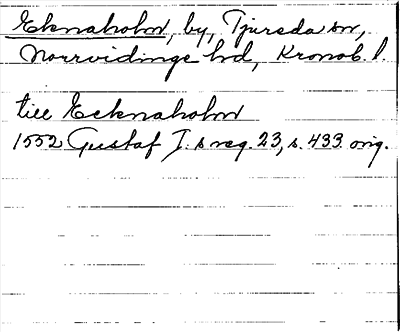 Eknaholm, by, Tjureda sn,
Norrvidinge hd, Kronob. l.
till Ecknaholm
1552 Gustaf I:s reg. 23, s. 433 orig.